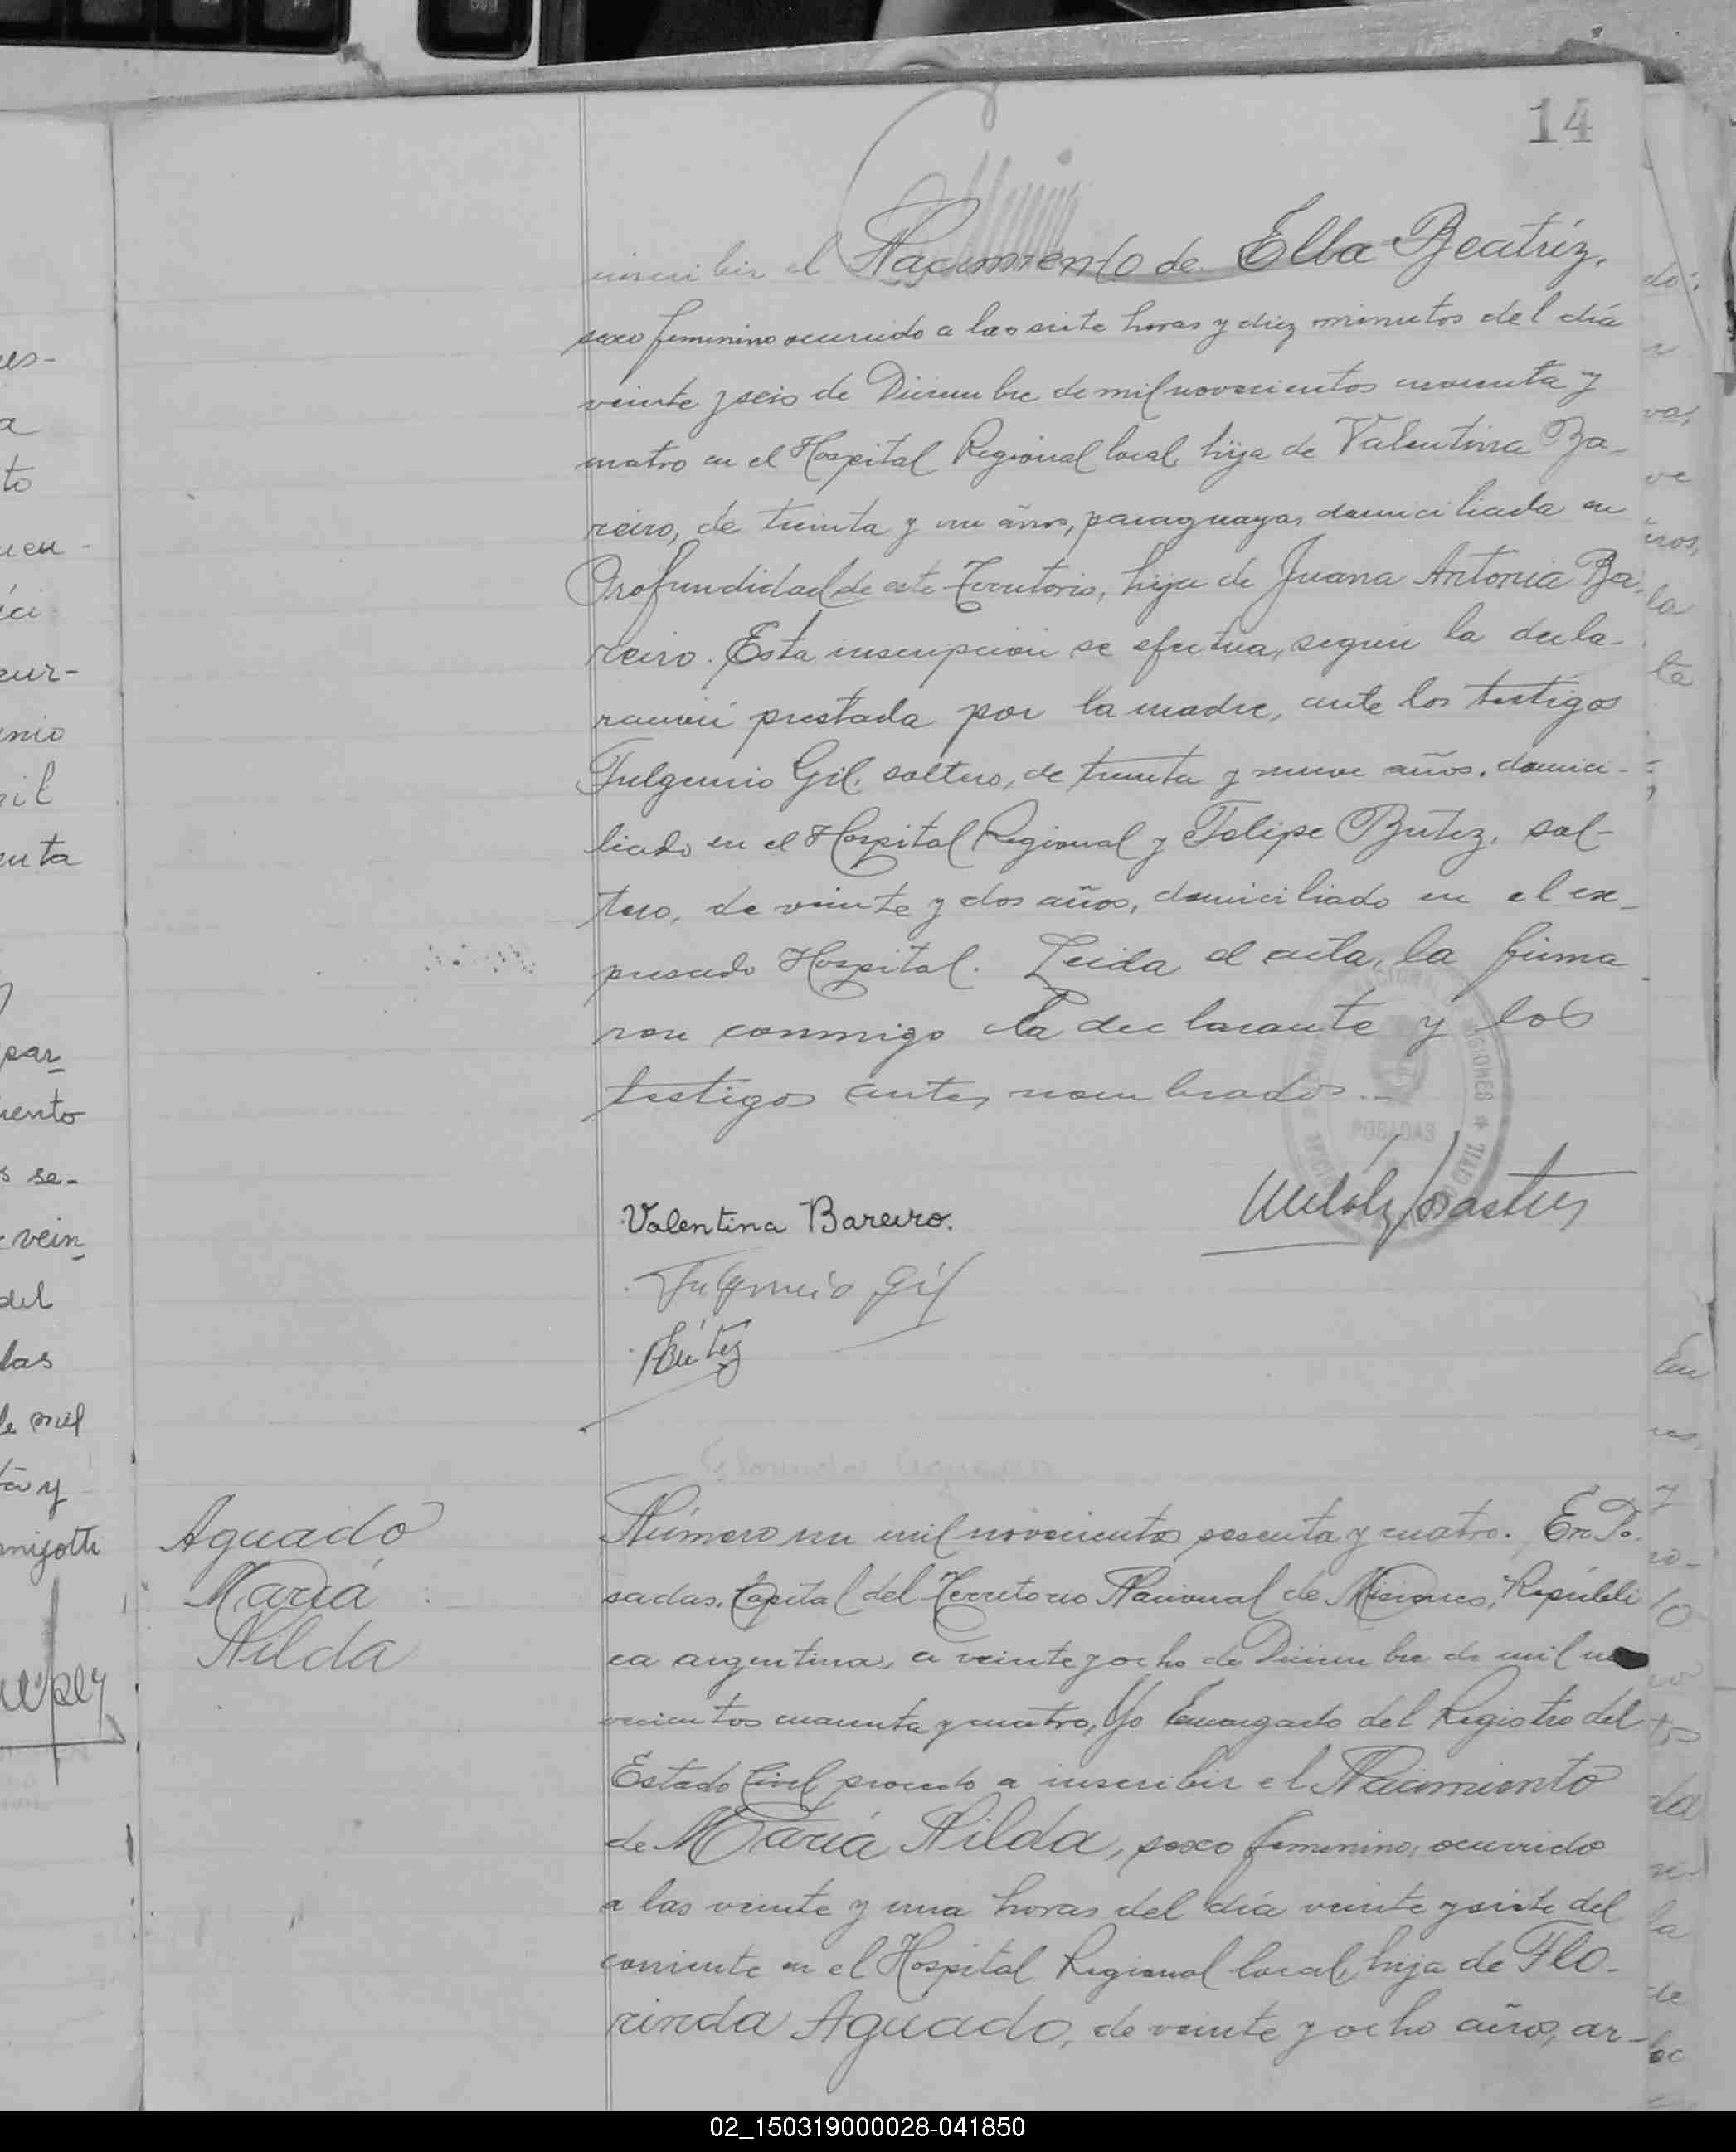 14
inscribir el Nacimiento de Elba Beatríz,
sexo femenino ocurrido a las siete horas y diez minutos del día
veinte y seis de Diciembre de mil novecientos cuarenta y
cuatro en el Hospital Regional local, hija de Valentina Ba-
reiro, de treinta y un años, paraguaya, domiciliada en
Profundidad de este Territorio, hija de Juana Antonia Ba-
reiro. Esta inscripción se efectua, según la decla-
ración prestada por la madre, ante los testigos
Fulgencio Gil, soltero, de treinta y nueve años, domici-
liado en el Hospital Regional y Felipe Britez, sol-
tero, de veinte y dos años, domiciliado en el ex-
presado Hospital. Leida el acta, la firma
ron conmigo la declarante y los
testigos antes nombrados.-
POSADAS
Valentina Bareiro.
Fulgencio Gil
Britez
Aguado
María
Nilda
Número un mil novecientos sesenta y cuatro. En Po-
sadas, Capital del Territorio Nacional de Misiones, Repúbli
ca argentina, a veinte y ocho de Diciembre de mil no
vecientos cuarenta y cuatro, Yo Encargado del Registro del
Estado Civil procedo a inscribir el Nacimiento
de María Nilda, sexo femenino, ocurrido
a las veinte y una horas del día veinte y siete del
corriente en el Hospital Regional local, hija de Flo-
rinda Aguado, de veinte y ocho años, ar-
02_150319000028-041850